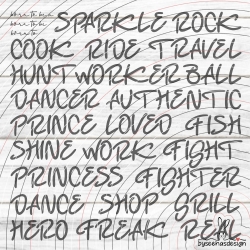 SPARKLE ROCK
COOK RIDE TRAVEL
HUNT WORKER BALL
DANCER AUTHENTIC
PRINCE LOVED FISH
SHINE WORK FIGHT
PRINCESS FIGHTER
DANCE SHOP GRILL
HERO FREAK REAL
bysselhasdesign